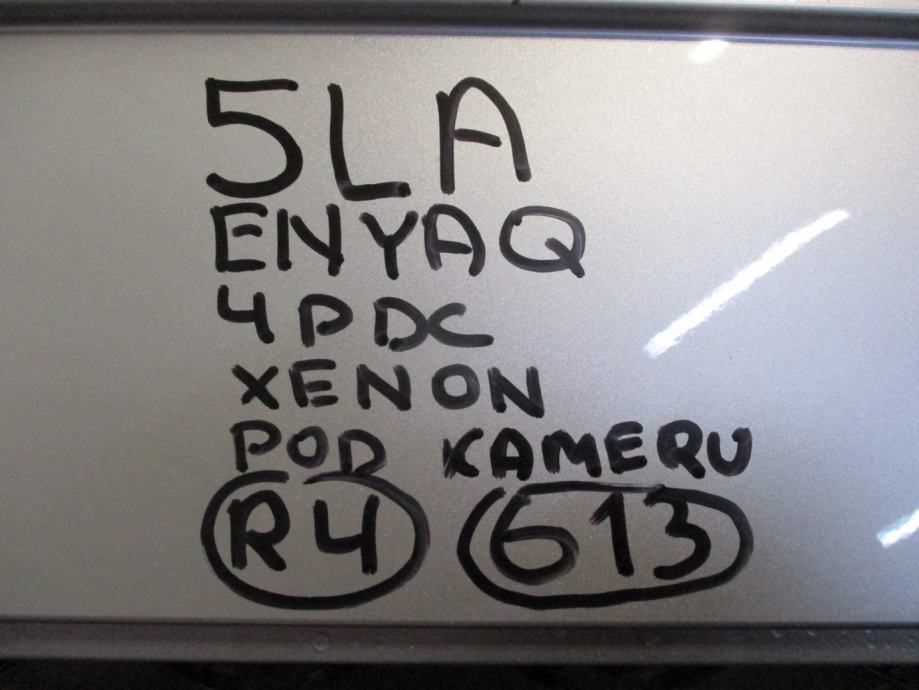 5LA
ENYAQ
4PDC
XENON
POD KAMERU
R4 613